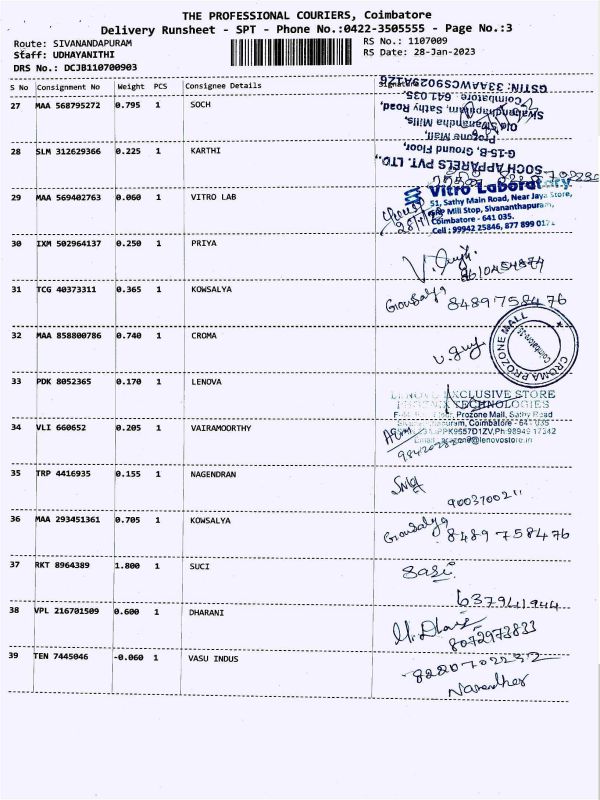 THE PROFESSIONAL COURIERS, Coimbatore
Delivery Runsheet - SPT - Phone No.:0422-3505555 - Page No.:3
Route: SIVANANDAPURAM
RS No.: 1107009
Staff: UDHAYANITHI
RS Date: 28-Jan-2023
DRS No.: DCJB110700903
S No Consignment No Weight PCS Consignee Details Signature
GSTIN: 33AAWCS9029A1Z6
Coimbatore - 641 035.
Sivanandhapuram, Sathy Road,
Old Sivanandha Mills,
Prozone Mall,
G-15-B, Ground Floor,
SOCH APPARELS PVT. LTD.,
27 MAA 568795272 0.795 1 SOCH
28 SLM 312629366 0.225 1 KARTHI
29 MAA 569402763 0.060 1 VITRO LAB
Vitro Laboratory
51, Sathy Main Road, Near Jaya Store,
Mill Stop, Sivananthapuram,
Coimbatore - 641 035.
Cell : 99942 25846, 877 899
30 IXM 502964137 0.250 1 PRIYA
31 TCG 40373311 0.365 1 KOWSALYA
Gowsalya 8489758476
32 MAA 858800786 0.740 1 CROMA
CROMA PROZONE MALL
Coimbatore-35
33 PDK 8052365 0.170 1 LENOVA
LENOVO EXCLUSIVE STORE
PHOENIX TECHNOLOGIES
Floor, Prozone Mall, Sathy Road
Coimbatore - 641 035
34 VLI 660652 0.205 1 VAIRAMOORTHY
35 TRP 4416935 0.155 1 NAGENDRAN
9003700211
36 MAA 293451361 0.705 1 KOWSALYA
Gowsalya 8489758476
37 RKT 8964389 1.800 1 SUCI
Sasi
637941944
38 VPL 216701509 0.600 1 DHARANI
8072973833
39 TEN 7445046 -0.060 1 VASU INDUS
8220702232
Narendher